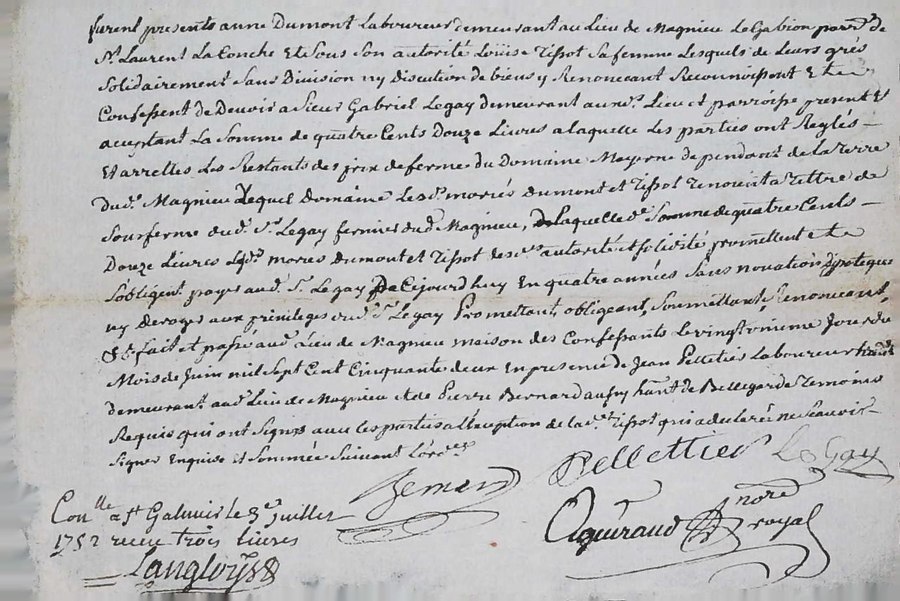 furent presents anne Dumont Laboureur demeurant au Lieu de Magnieu Le Gabion parr.se de
St. Laurent La Conche Et Sous Son autorité Loüise Tissot Sa femme Lesquels de Leurs grés
Solidairement Sans Division ny Discution de biens y Renoncant Reconnoissent Et
Confessent de Devoir a Sieur Gabriel Legay demeurant aud. Lieu et parroisse present Et
acceptant La Somme de quatre Cents Douze Livres a laquelle Les parties ont Reglés
Et arrettes Les Restants des prix de ferme du Domaine Mayerne dependant de La Terre
dud. Magnieu Lequel Domaine Lesd. mariés Dumont et Tissot Tenoient a Tittre de
Sousferme dud. Sr. Legay fermier dud. Magnieu, De laquelle de. Somme de quatre Cents
Douze Livres Lesd. mariés Dumont et Tissot de autorité et Solidité promettent et
Sobligent payer aud. Sr. Legay De Cejourdhuy En quatre années Sans novation Dipoteque
ny deroger aux privileges dud. Sr. Legay Promettant, obligeant, Soumettant, Renonceant,
fait et passé aud. Lieu de Magnieu maison des Confessants Le vingtroisieme Jour du
Mois de Juin mil Sept Cent Cinquante deux En presence de Jean Pelletier Laboureur
demeurant aud. Lieu de Magnieu Et de Pierre Bernard de Bellegarde Temoins
Requis qui ont Signés avec Les parties a Lexception de lade. Tissot qui a declaré ne Scavoir
Signer Enquise Et Sommée Suivant
Pellettier Le Gay
Con.lle a St Galmier le 3e Juillet
1752 receu trois livres
Langloys
nore
royal